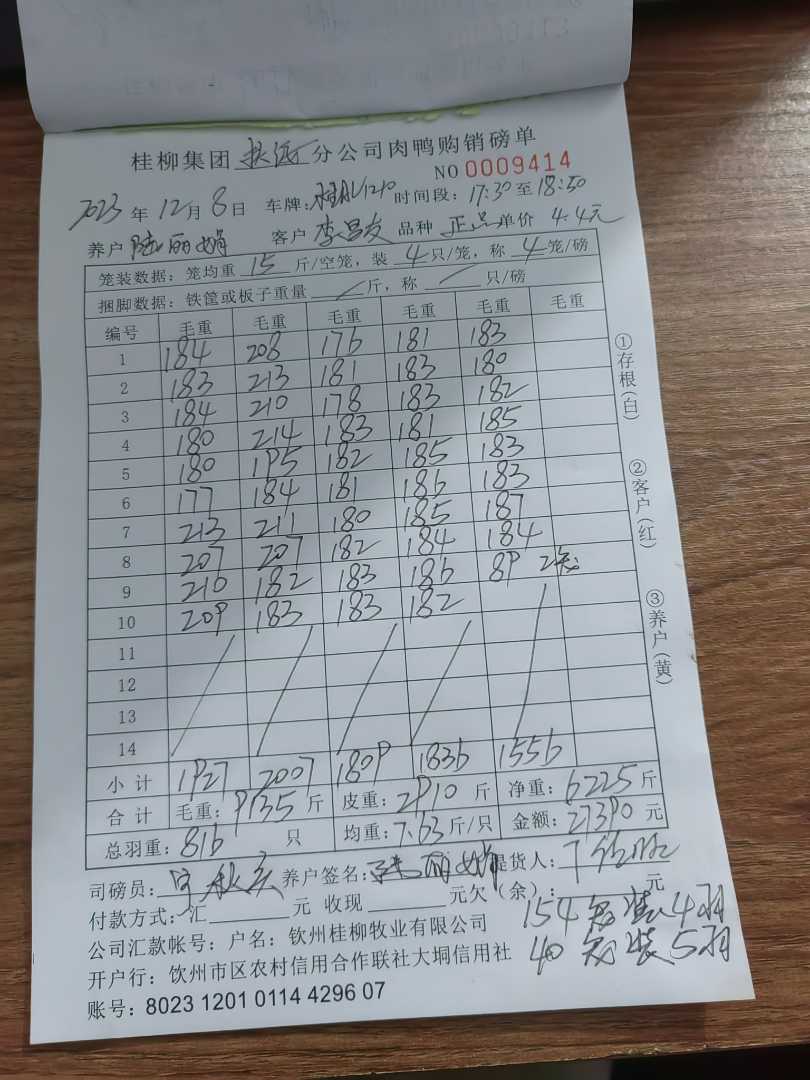 桂柳集团 扶沥 分公司肉鸭购销磅单
NO 0009414
2023 年 12 月 8 日 车牌: 桂AL1210 时间段: 17:30 至 18:50
养户 陆丽娟 客户 李昌友 品种 正品 单价 4.4元
笼装数据: 笼均重 15 斤/空笼, 装 4 只/笼, 称 4 笼/磅
捆脚数据: 铁筐或板子重量 / 斤, 称 / 只/磅
编号 毛重 毛重 毛重 毛重 毛重 毛重
1 184 208 176 181 183
2 183 213 181 183 180
3 184 210 178 183 182
4 180 214 183 181 185
5 180 195 182 185 183
6 177 184 181 186 183
7 213 211 180 185 187
8 207 207 182 184 184
9 210 182 183 186 89 2笼
10 209 183 183 182
11
12
13
14
小计 1927 2007 1809 1836 1556
合计 毛重: 9135 斤 皮重: 2910 斤 净重: 6225 斤
总羽重: 816 只 均重: 7.63 斤/只 金额: 27390 元
司磅员: 养户签名: 陆丽娟 提货人:
付款方式: 汇 元 收现 元欠(余): 元
154笼装4羽
公司汇款帐号: 户名: 钦州桂柳牧业有限公司
40笼装5羽
开户行: 钦州市区农村信用合作联社大垌信用社
账号: 8023 1201 0114 4296 07
①存根(白)
②客户(红)
③养户(黄)